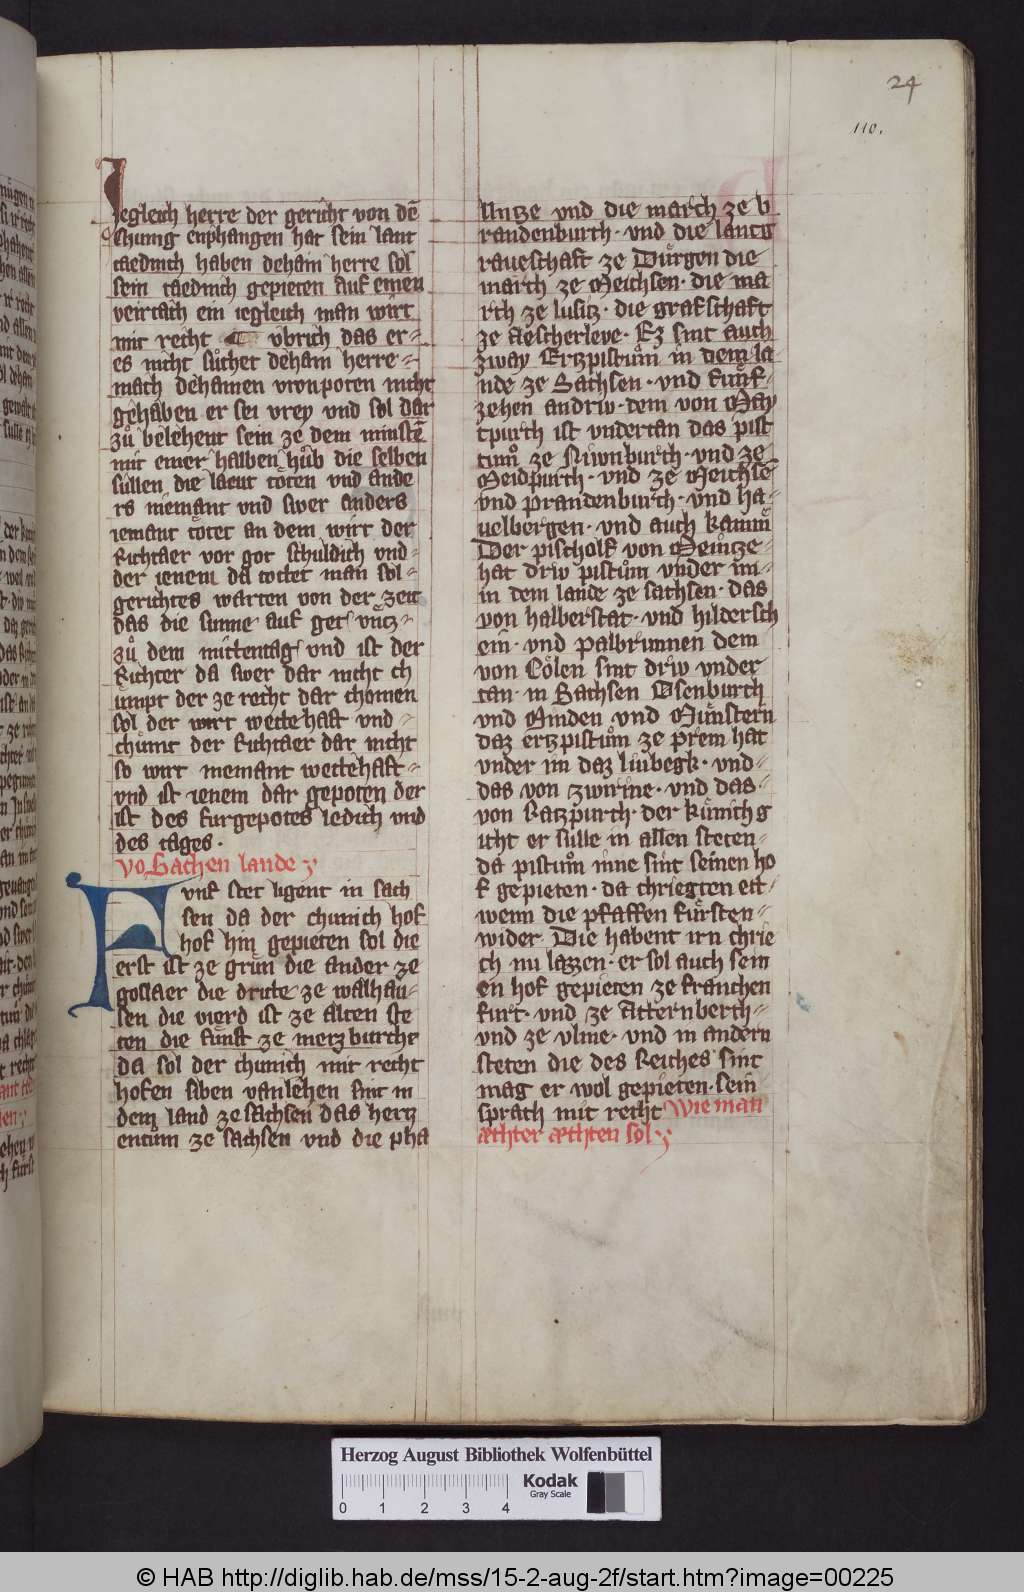 24
110.
Iegleich herre der gericht von dē
chunig enphangen hat sein lant
taedinch haben dehain herre sol
sein taedinch gepieten auf einen
veirtach ein iegleich man wirt
mit recht ubrich das er
es nicht sůchet dehain herre
mach dehainen vronpoten nicht
gehaben er sei vrey vnd sol dar
zů belehent sein ze dem minstē
mit einer halben hůb die selben
sullen die laeut tōten vnd ande
rs niemant vnd swer anders
iemant tōtet an dem wirt der
Richtaer vor got schuldich vnd
der ienem da toetet man sol
gerichtes warten von der zeit
das die sunne auf get vntz
zů dem mittentag vnd ist der
Richter da swer dar nicht ch
umpt der ze recht dar chomen
sol der wirt wettehaft vnd
chůmt der Richtaer dar nicht
so wirt niemant wettehaft
vnd ist ienem dar gepoten der
ist des furgepotes ledich vnd
des tages.
vo Sachen lande
Funf stet ligent in sach
sen da der chunich hof
hof hin gepieten sol die
erst ist ze grůn die ander ze
goslaer die dritte ze walhau
sen die vierd ist ze alten ste
ten die funft ze merzburche
da sol der chunich mit recht
hofen siben vanlehen sint in
dem land ze sachsen das hertz
entům ze sachsen vnd die pha
llntze vnd die march ze b
randenburch. vnd die lantg
raueschaft ze Dürgen die
march ze Meichsen. die ma
rch ze lusitz. die grafschaft
ze Aescherleve. Ez sint auch
zway Ertzpistům in dem la
nde ze Sachsen. vnd funf
zehen andriv. dem von May
tpurch ist vndertan das pist
tům ze Niwnburch. vnd ze
Meidpurch. vnd ze Meichse
vnd prandenburch. vnd ha
uelbergen. vnd auch kamin
Der pischolf von Meintze
hat driv pistům vnder im
in dem lande ze sachsen. das
von halberstat. vnd hildersch
ein. vnd palbrunnen dem
von Cölen sint driv vnder
tan. in Sachsen Osenburch
vnd Minden vnd Münstern
daz ertzpistům ze prem hat
vnder im daz liubegk. vnd
das von zwirine. vnd das
von Ratzpurch. der künich g
icht er sulle in allen steten
da pistům inne sint seinen ho
f gepieten. da chriegten ett
wenn die pfaffen fürsten
wider. Die habent irn chrie
ch nu lazzen. er sol auch sein
en hof gepieten ze franchen
furt. vnd ze Atternberch
vnd ze vlme. vnd in andern
steten die des Reiches sint
mag er wol gepieten. sein
sprach mit recht Wie man
æchter æchten sol
Herzog August Bibliothek Wolfenbüttel
Kodak
Gray Scale
0 1 2 3 4
© HAB http://diglib.hab.de/mss/15-2-aug-2f/start.htm?image=00225